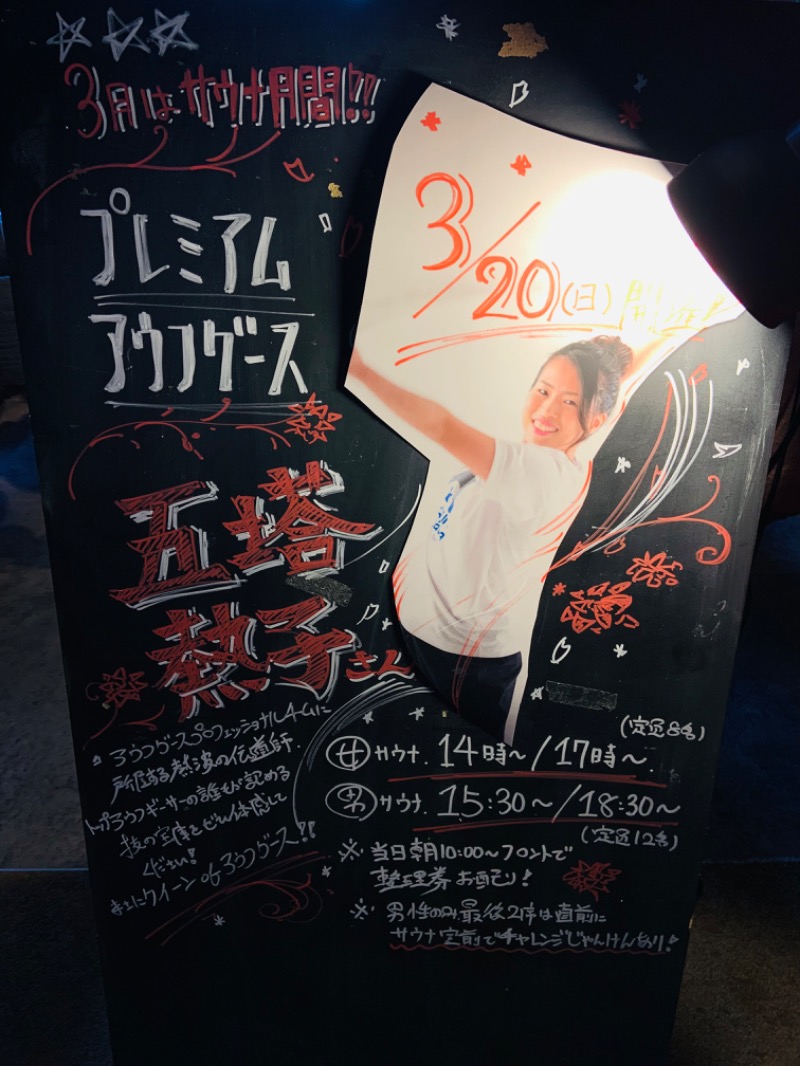 3月はサウナ月間!!
プレミアム
アウフグース
3/20(日)開催!
五塔
熱子さん
アウフグースプロフェッショナルチームに
所属する熱波の伝道師.
トップアウフギーサーの誰もが認める
技の宝庫をぜひ体感して
ください!
まさにクイーンofアウフグース!!
(定員8名)
女サウナ. 14時~/17時~
男サウナ. 15:30~/18:30~
(定員12名)
※ 当日朝10:00~フロントで
整理券お配り!
※ 男性のみ最後2席は直前に
サウナ室前でチャレンジじゃんけんあり!